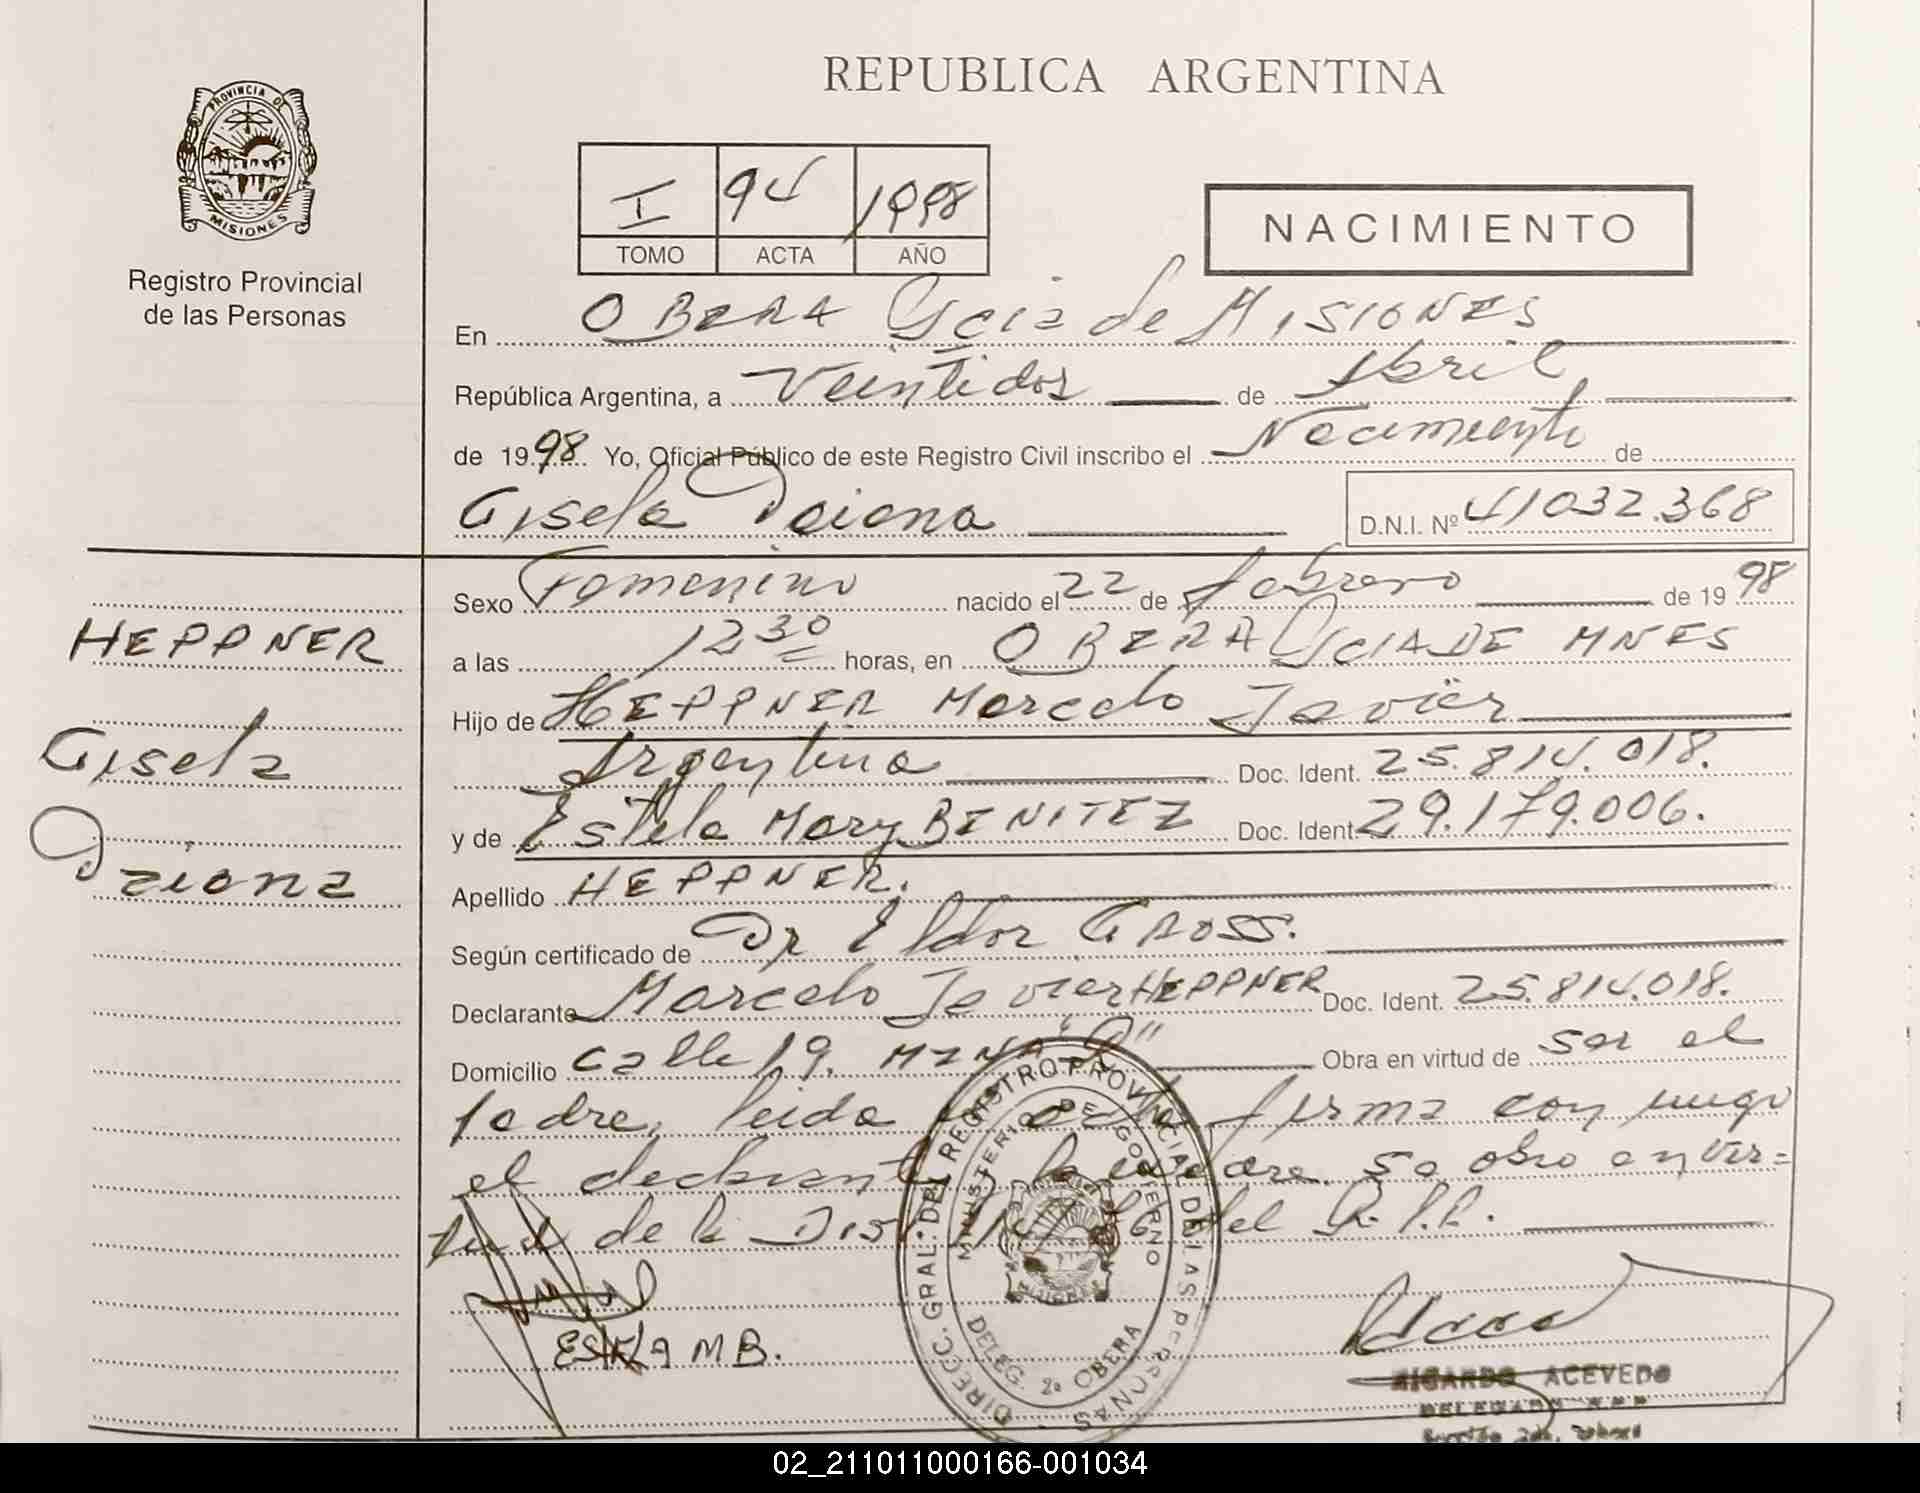 REPUBLICA ARGENTINA
PROVINCIA DE
MISIONES
Registro Provincial
de las Personas
I 94 1998
TOMO ACTA AÑO
NACIMIENTO
En OBERA Pcia de MISIONES
República Argentina, a Veintidos de Abril
de 1998 Yo, Oficial Público de este Registro Civil inscribo el Nacimiento de
Gisela Daiana D.N.I. Nº 41032.368
HEPPNER
Gisela
Daiana
Sexo Femenino nacido el 22 de febrero de 1998
a las 12 30 horas, en OBERA PCIA DE MNES
Hijo de HEPPNER Marcelo Javier
Argentina Doc. Ident. 25.814.018.
y de Estela Mary BENITEZ Doc. Ident. 29.179.006.
Apellido HEPPNER.
Según certificado de Dr Eldor GROSS.
Declarante Marcelo Javier HEPPNER Doc. Ident. 25.814.018.
Domicilio Calle 19. Obra en virtud de ser el
padre, leida el acta firma con migo
el declarante y la madre. se obro en vir=
tud de la Dis del R.P.P.
ESTELA M B.
DIRECC. GRAL. DEL REGISTRO PROVINCIAL DE LAS PERSONAS
MINISTERIO DE GOBIERNO
DELEG. 2a OBERA
RICARDO ACEVEDO
DELEGADO
02_211011000166-001034